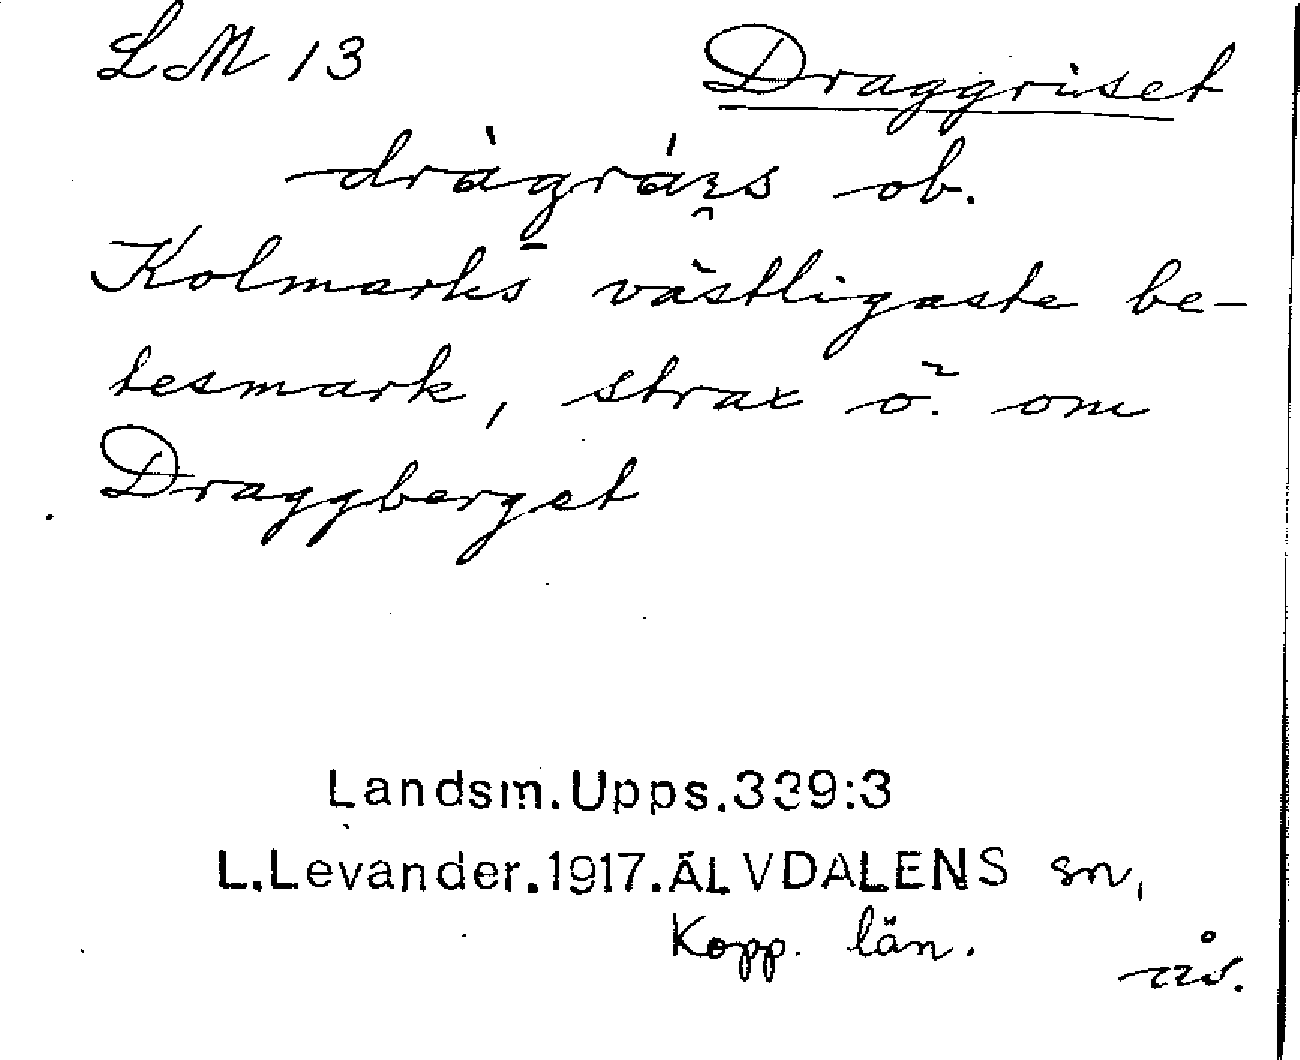 LM 13
Draggriset
dràgráis ob.
Kolmarks västligaste be-
tesmark, strax ö. om
Draggberget
Landsm.Upps.339:3
L.Levander.1917.ÄLVDALENS sn,
Kopp. län.